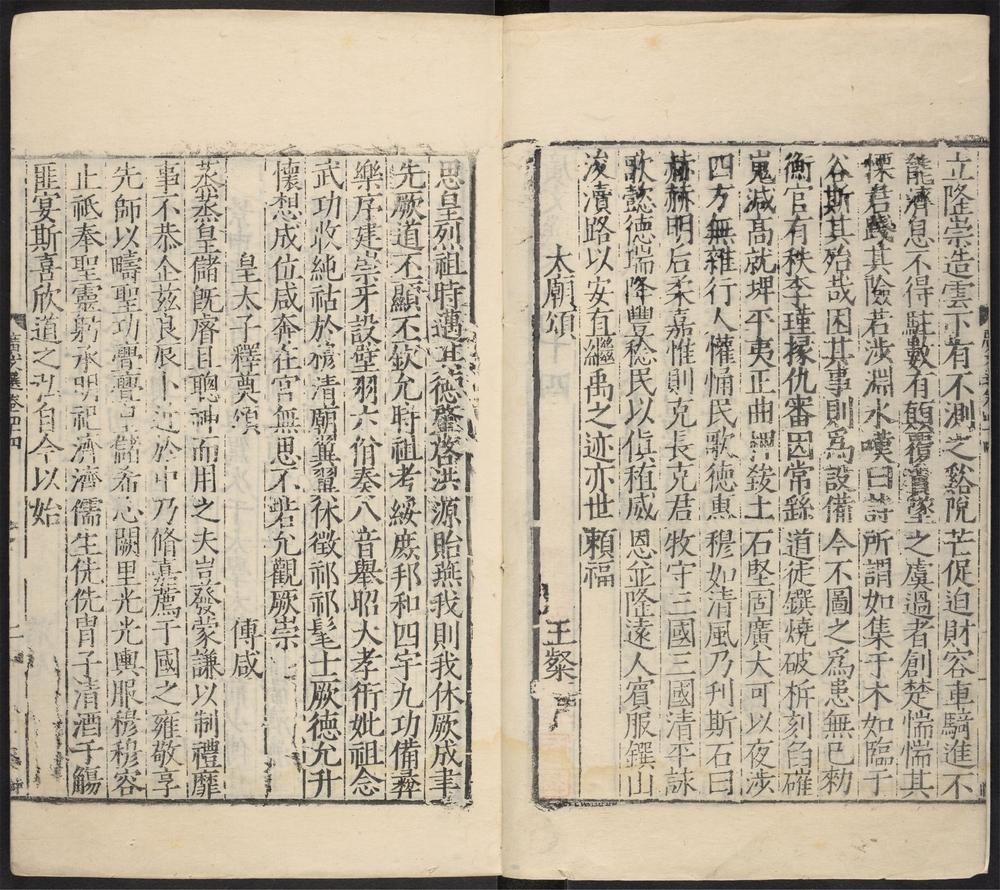 立隆崇造雲下有不測之谿阸芒促迫財容車騎進不
能濟息不得駐數有顛覆霣墜之虞過者創楚惴惴其
慄君踐其險若涉淵水嘆曰詩所謂如集于木如臨于
谷斯其殆哉因其事則為設備今不圖之為患無已勑
衡官有秩李瑾掾仇審因常繇道徒鐉燒破析刻臽確
嵬減高就埤平夷正曲柙致土石堅固廣大可以夜涉
四方無雍行人懽悀民歌德惠穆如清風乃刋斯石曰
赫赫明后柔嘉惟則克長克君牧守三國三國清平詠
歌懿德瑞降豐稔民以偵稙威恩並隆遠人賓服鐉山
浚瀆路以安直繼禹之迹亦世賴福
太廟頌 王粲
思皇烈祖時邁其德肇啓洪源貽燕我則我休厥成聿
先厥道丕顯丕欽允時祖考綏庶邦和四宇九功備彝
樂序建崇牙設壁羽六佾奏八音舉昭大孝衎妣祖念
武功收純祜於穆清廟翼翼休徵祁祁髦士厥德允升
懷想成位咸奔在宮無思不若允觀厥崇
皇太子釋奠頌 傅咸
蒸蒸皇儲旣睿且聰神而用之夫豈發蒙謙以制禮靡
事不恭企茲良辰卜近於中乃脩嘉薦于國之雍敬享
先師以疇聖功亹亹皇儲希心闕里光光輿服穆穆容
止祇奉聖靈躬承明祀濟濟儒生侁侁胄子清酒于觴
匪宴斯喜欣道之弘自今以始